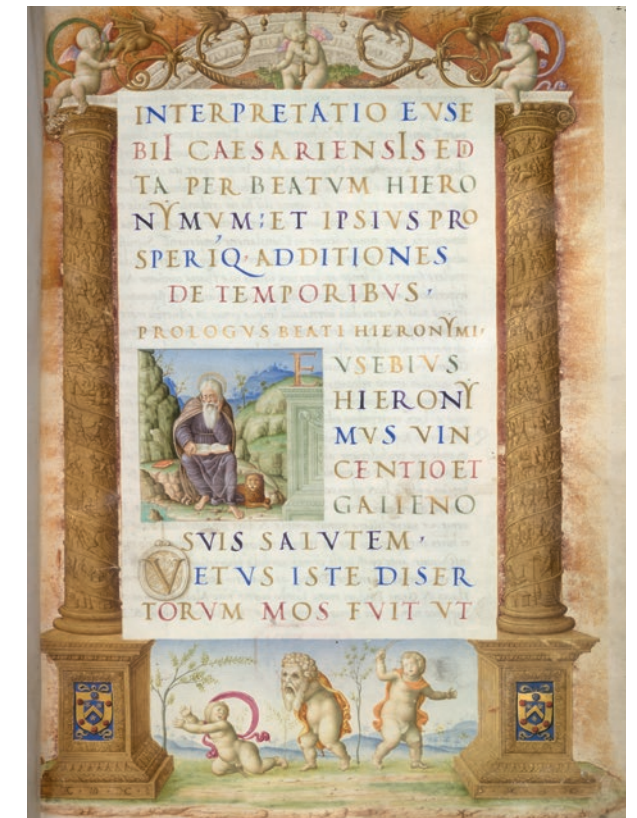 INTERPRETATIO EVSE
BII CAESARIENSIS ED
TA PER BEATVM HIERO
NYMVM: ET IPSIVS PRO
SPERIQ· ADDITIONES
DE TEMPORIBVS·
PROLOGVS BEATI HIERONYMI·
E
VSEBIVS
HIERONY
MVS VIN
CENTIO ET
GALIENO
SVIS SALVTEM·
VETVS ISTE DISER
TORVM MOS FVIT VT